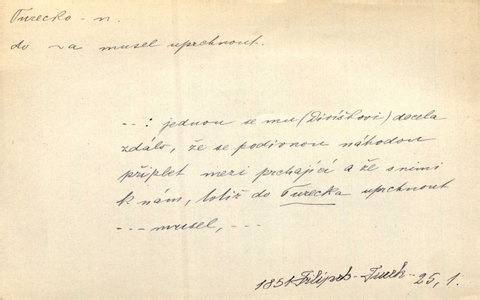 Turecko - n.
do ~a musel uprchnout.
- - : jednou se mu (Divíškovi) docela
zdálo, že se podivnou náhodou
připlet mezi prchající a že s nimi
k nám, totiž do Turecka uprchnout
- - - musel, - - -
1851 Filípek - Turek - 25, 1.